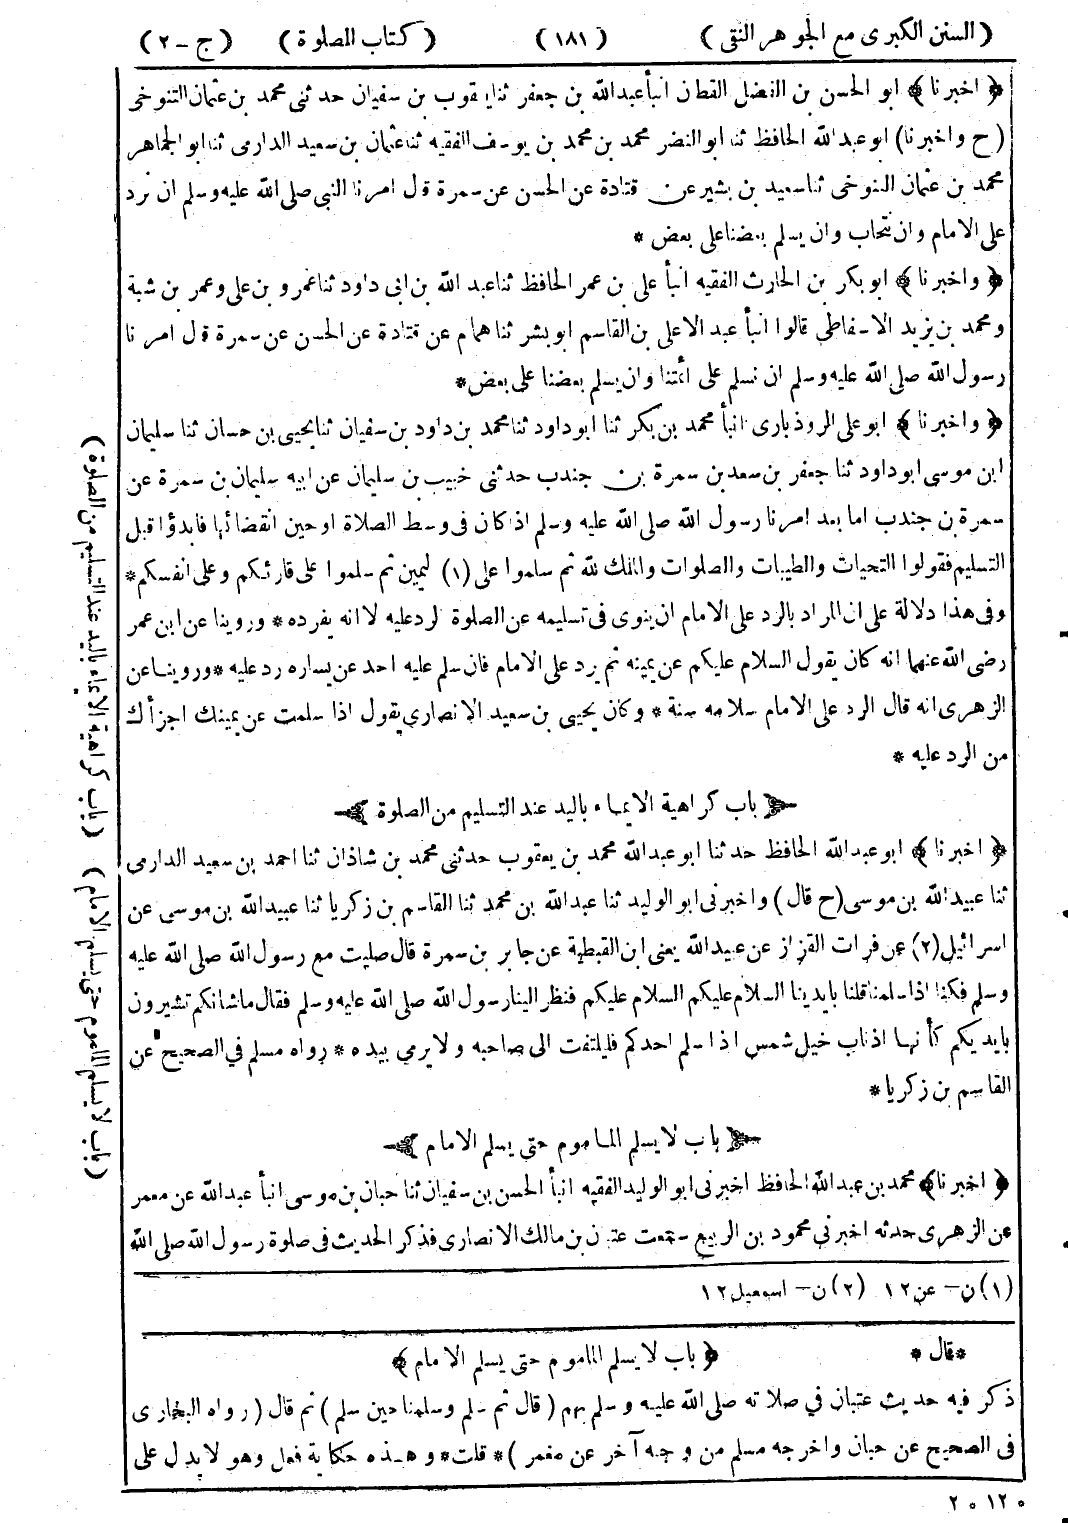 (السنن الكبرى مع الجوهر النقى) (١٨١) (كتاب الصلوة) (ج - ٢)
﴿اخبرنا﴾ ابو الحسن بن الفضل القطان انبأ عبدالله بن جعفر ثنا يعقوب بن سفيان حدثنى محمد بن عثمان التنوخى
(ح واخبرنا) ابو عبدالله الحافظ ثنا ابو النضر محمد بن محمد بن يوسف الفقيه ثنا عثمان بن سعيد الدارمى ثنا ابو الجماهر
محمد بن عثمان التنوخى ثنا سعيد بن بشير عن قتادة عن الحسن عن سمرة قال امرنا النبى صلى الله عليه وسلم ان نرد
على الامام وان نتحاب وان يسلم بعضنا على بعض *
﴿واخبرنا﴾ ابو بكر بن الحارث الفقيه انبأ على بن عمر الحافظ ثنا عبد الله بن ابى داود ثنا عمرو بن على وعمر بن شبة
ومحمد بن يزيد الاسفاطى قالوا انبأ عبد الاعلى بن القاسم ابو بشر ثنا همام عن قتادة عن الحسن عن سمرة قال امرنا
رسول الله صلى الله عليه وسلم ان نسلم على ائمتنا وان يسلم بعضنا على بعض*
﴿واخبرنا﴾ ابو على الروذبارى انبأ محمد بن بكر ثنا ابو داود ثنا محمد بن داود بن سفيان ثنا يحيى بن حسان ثنا سليمان
ابن موسى ابو داود ثنا جعفر بن سعد بن سمرة بن جندب حدثنى خبيب بن سليمان عن ابيه سليمان بن سمرة عن
سمرة بن جندب اما بعد امرنا رسول الله صلى الله عليه وسلم اذ كان فى وسط الصلاة او حين انقضائها فابدؤا قبل
التسليم فقولوا التحيات والطيبات والصلوات والملك لله ثم سلموا على (١) اليمين ثم سلموا على قارئكم وعلى انفسكم*
وفى هذا دلالة على ان المراد بالرد على الامام ان ينوى فى تسليمه عن الصلوة الرد عليه لا انه يفرده * وروينا عن ابن عمر
رضى الله عنهما انه كان يقول السلام عليكم عن يمينه ثم يرد على الامام فان سلم عليه احد عن يساره رد عليه * وروينا عن
الزهرى انه قال الرد على الامام سلامه سنة * وكان يحيى بن سعيد الانصارى يقول اذا سلمت عن يمينك اجزأك
من الرد عليه *
باب كراهية الايماء باليد عند التسليم من الصلوة
﴿اخبرنا﴾ ابو عبدالله الحافظ حدثنا ابو عبدالله محمد بن يعقوب حدثنى محمد بن شاذان ثنا احمد بن سعيد الدارمى
ثنا عبيد الله بن موسى (ح قال) واخبرنى ابو الوليد ثنا عبدالله بن محمد ثنا القاسم بن زكريا ثنا عبيدالله بن موسى عن
اسرائيل (٢) عن فرات القزاز عن عبيدالله يعنى ابن القبطية عن جابر بن سمرة قال صليت مع رسول الله صلى الله عليه
وسلم فكنا اذا سلمنا قلنا بايدينا السلام عليكم السلام عليكم فنظر الينا رسول الله صلى الله عليه وسلم فقال ما شانكم تشيرون
بايديكم كأنها اذناب خيل شمس اذا سلم احدكم فليلتفت الى صاحبه ولا يرمى بيده * رواه مسلم فى الصحيح عن
القاسم بن زكريا *
باب لا يسلم الماموم حتى يسلم الامام
﴿اخبرنا﴾ محمد بن عبدالله الحافظ اخبرنى ابو الوليد الفقيه انبأ الحسن بن سفيان ثنا حبان بن موسى انبأ عبدالله عن معمر
عن الزهرى حدثه اخبرنى محمود بن الربيع سمعت عتبان بن مالك الانصارى فذكر الحديث فى صلوة رسول الله صلى الله
(١) ن - عن ١٢ (٢) ن - اسمعيل ١٢
* قال *
﴿باب لا يسلم الماموم حتى يسلم الامام﴾
ذكر فيه حديث عتبان في صلاته صلى الله عليه وسلم بهم (قال ثم سلم وسلمنا حين سلم) ثم قال (رواه البخارى
فى الصحيح عن حبان واخرجه مسلم من وجه آخر عن معمر) * قلت * وهذه حكاية فعل وهو لا يدل على
(باب كراهية الايماء باليد عند التسليم من الصلوة)
(باب لا يسلم الماموم حتى يسلم الامام)